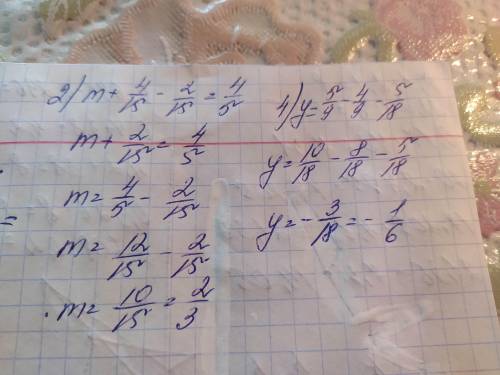 2) m + 4/15 - 2/15 = 4/5
m + 2/15 = 4/5
m = 4/5 - 2/15
m = 12/15 - 2/15
m = 10/15 = 2/3
4) y = 5/9 - 4/9 - 5/18
y = 10/18 - 8/18 - 5/18
y = - 3/18 = - 1/6